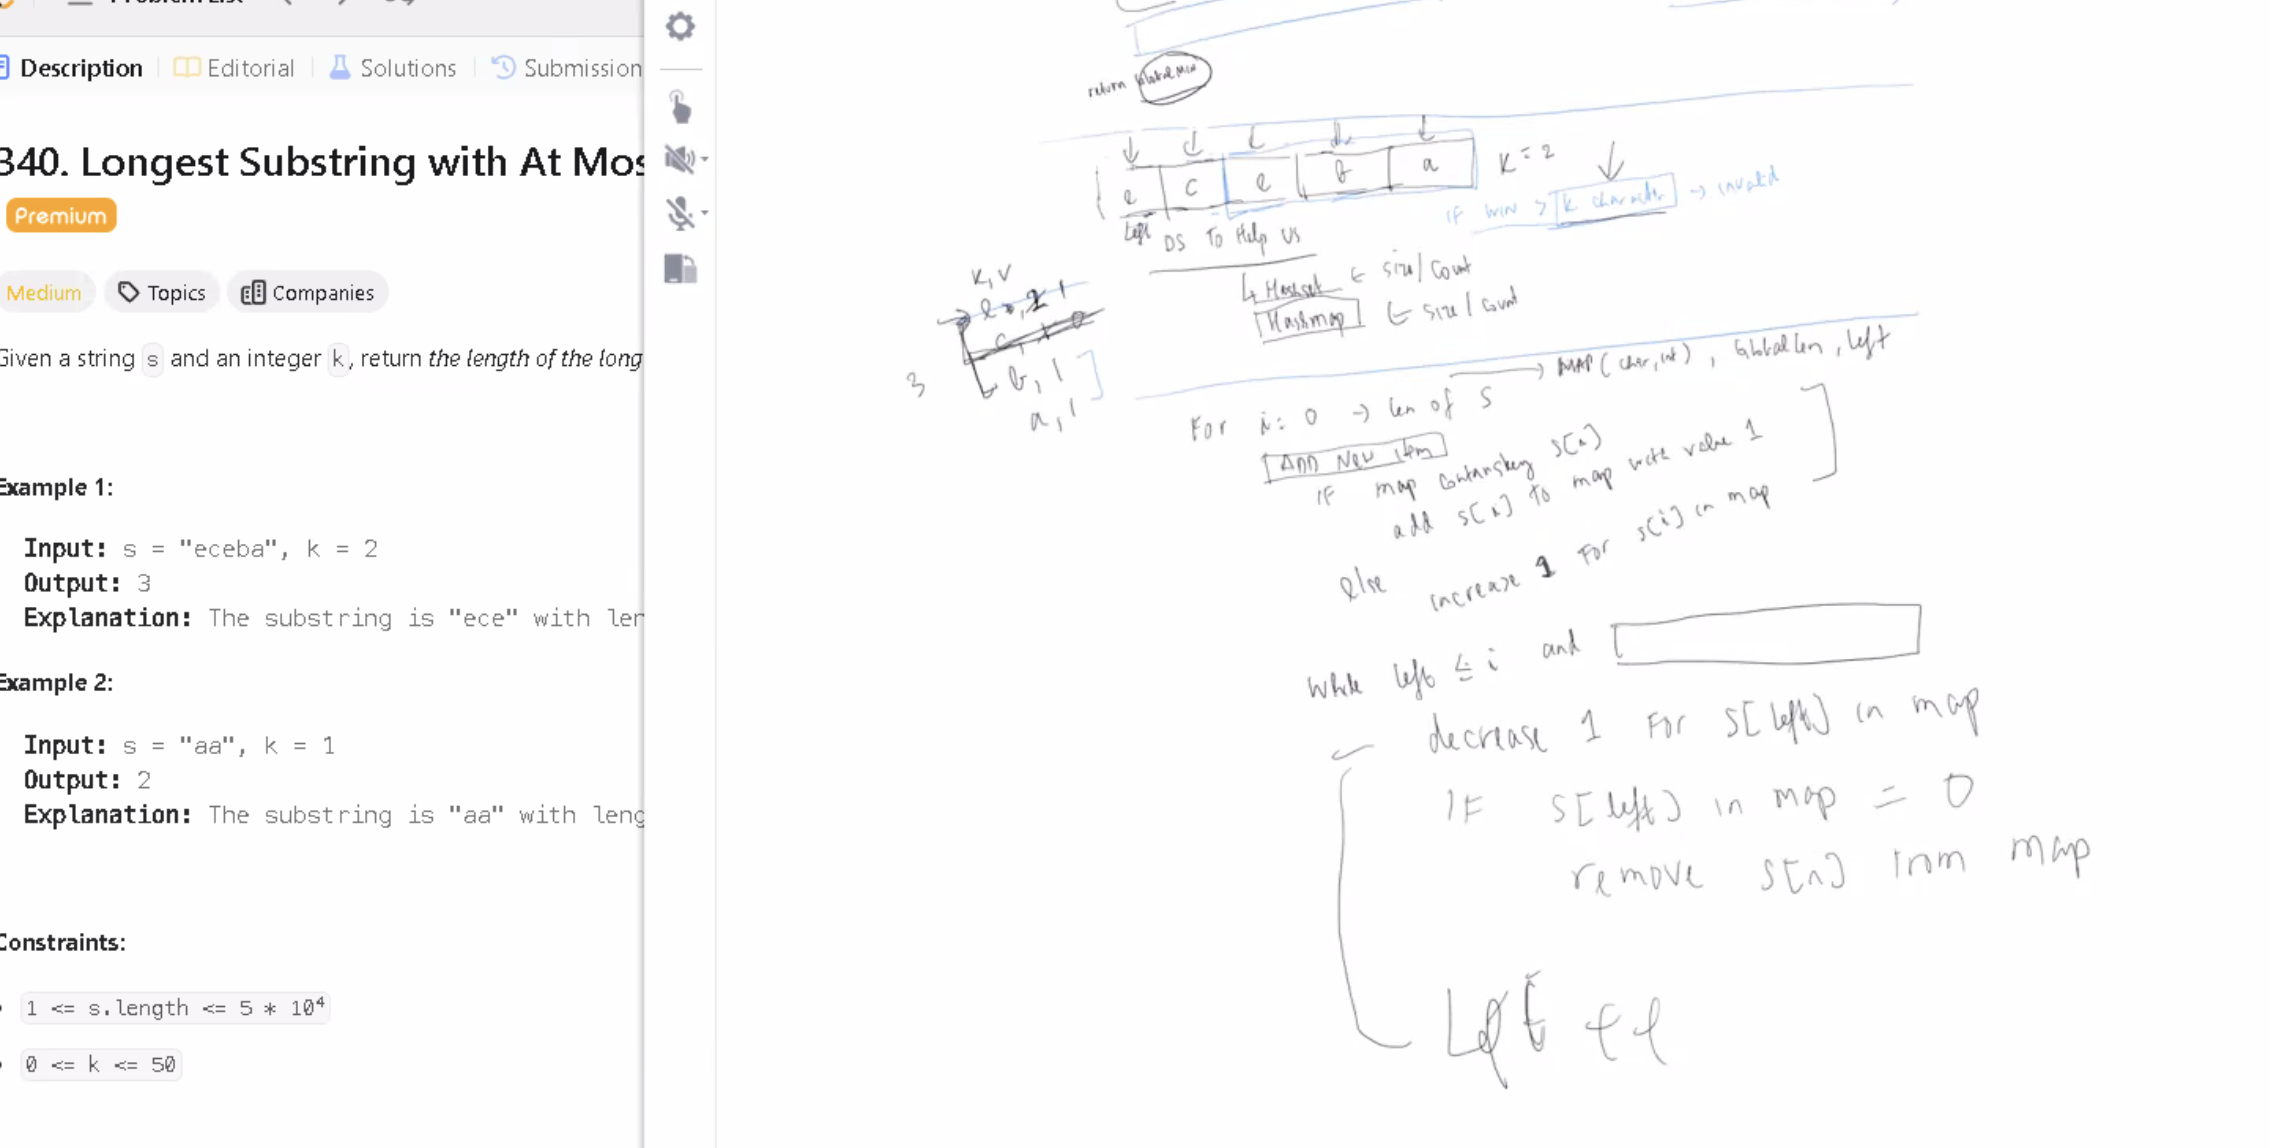 Problem List
Description
Editorial
Solutions
Submission
340. Longest Substring with At Mos
Premium
Medium
Topics
Companies
Given a string s and an integer k, return the length of the long
Example 1:
Input: s = "eceba", k = 2
Output: 3
Explanation: The substring is "ece" with ler
Example 2:
Input: s = "aa", k = 1
Output: 2
Explanation: The substring is "aa" with leng
Constraints:
1 <= s.length <= 5 * 10⁴
0 <= k <= 50
return Global Min
e c e b a K = 2
IF WIN > k character → invalid
Left
DS To Help US
↳ Hashset ← size/count
Hashmap ← size/count
K, V
b, 1
a, 1
3
→ MAP (char, int), Global len, left
For i: 0 → len of S
ADD New item
IF map containskey S[i]
add S[i] to map with value 1
else increase 1 For S[i] in map
while left ≤ i and
decrease 1 For S[left] in map
IF S[left] in map = 0
remove S[i] from map
Left ++